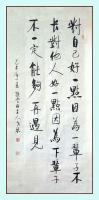 對自己好一點因為一輩子不
長對他人好一點因為下輩子
不一定能夠再遇見